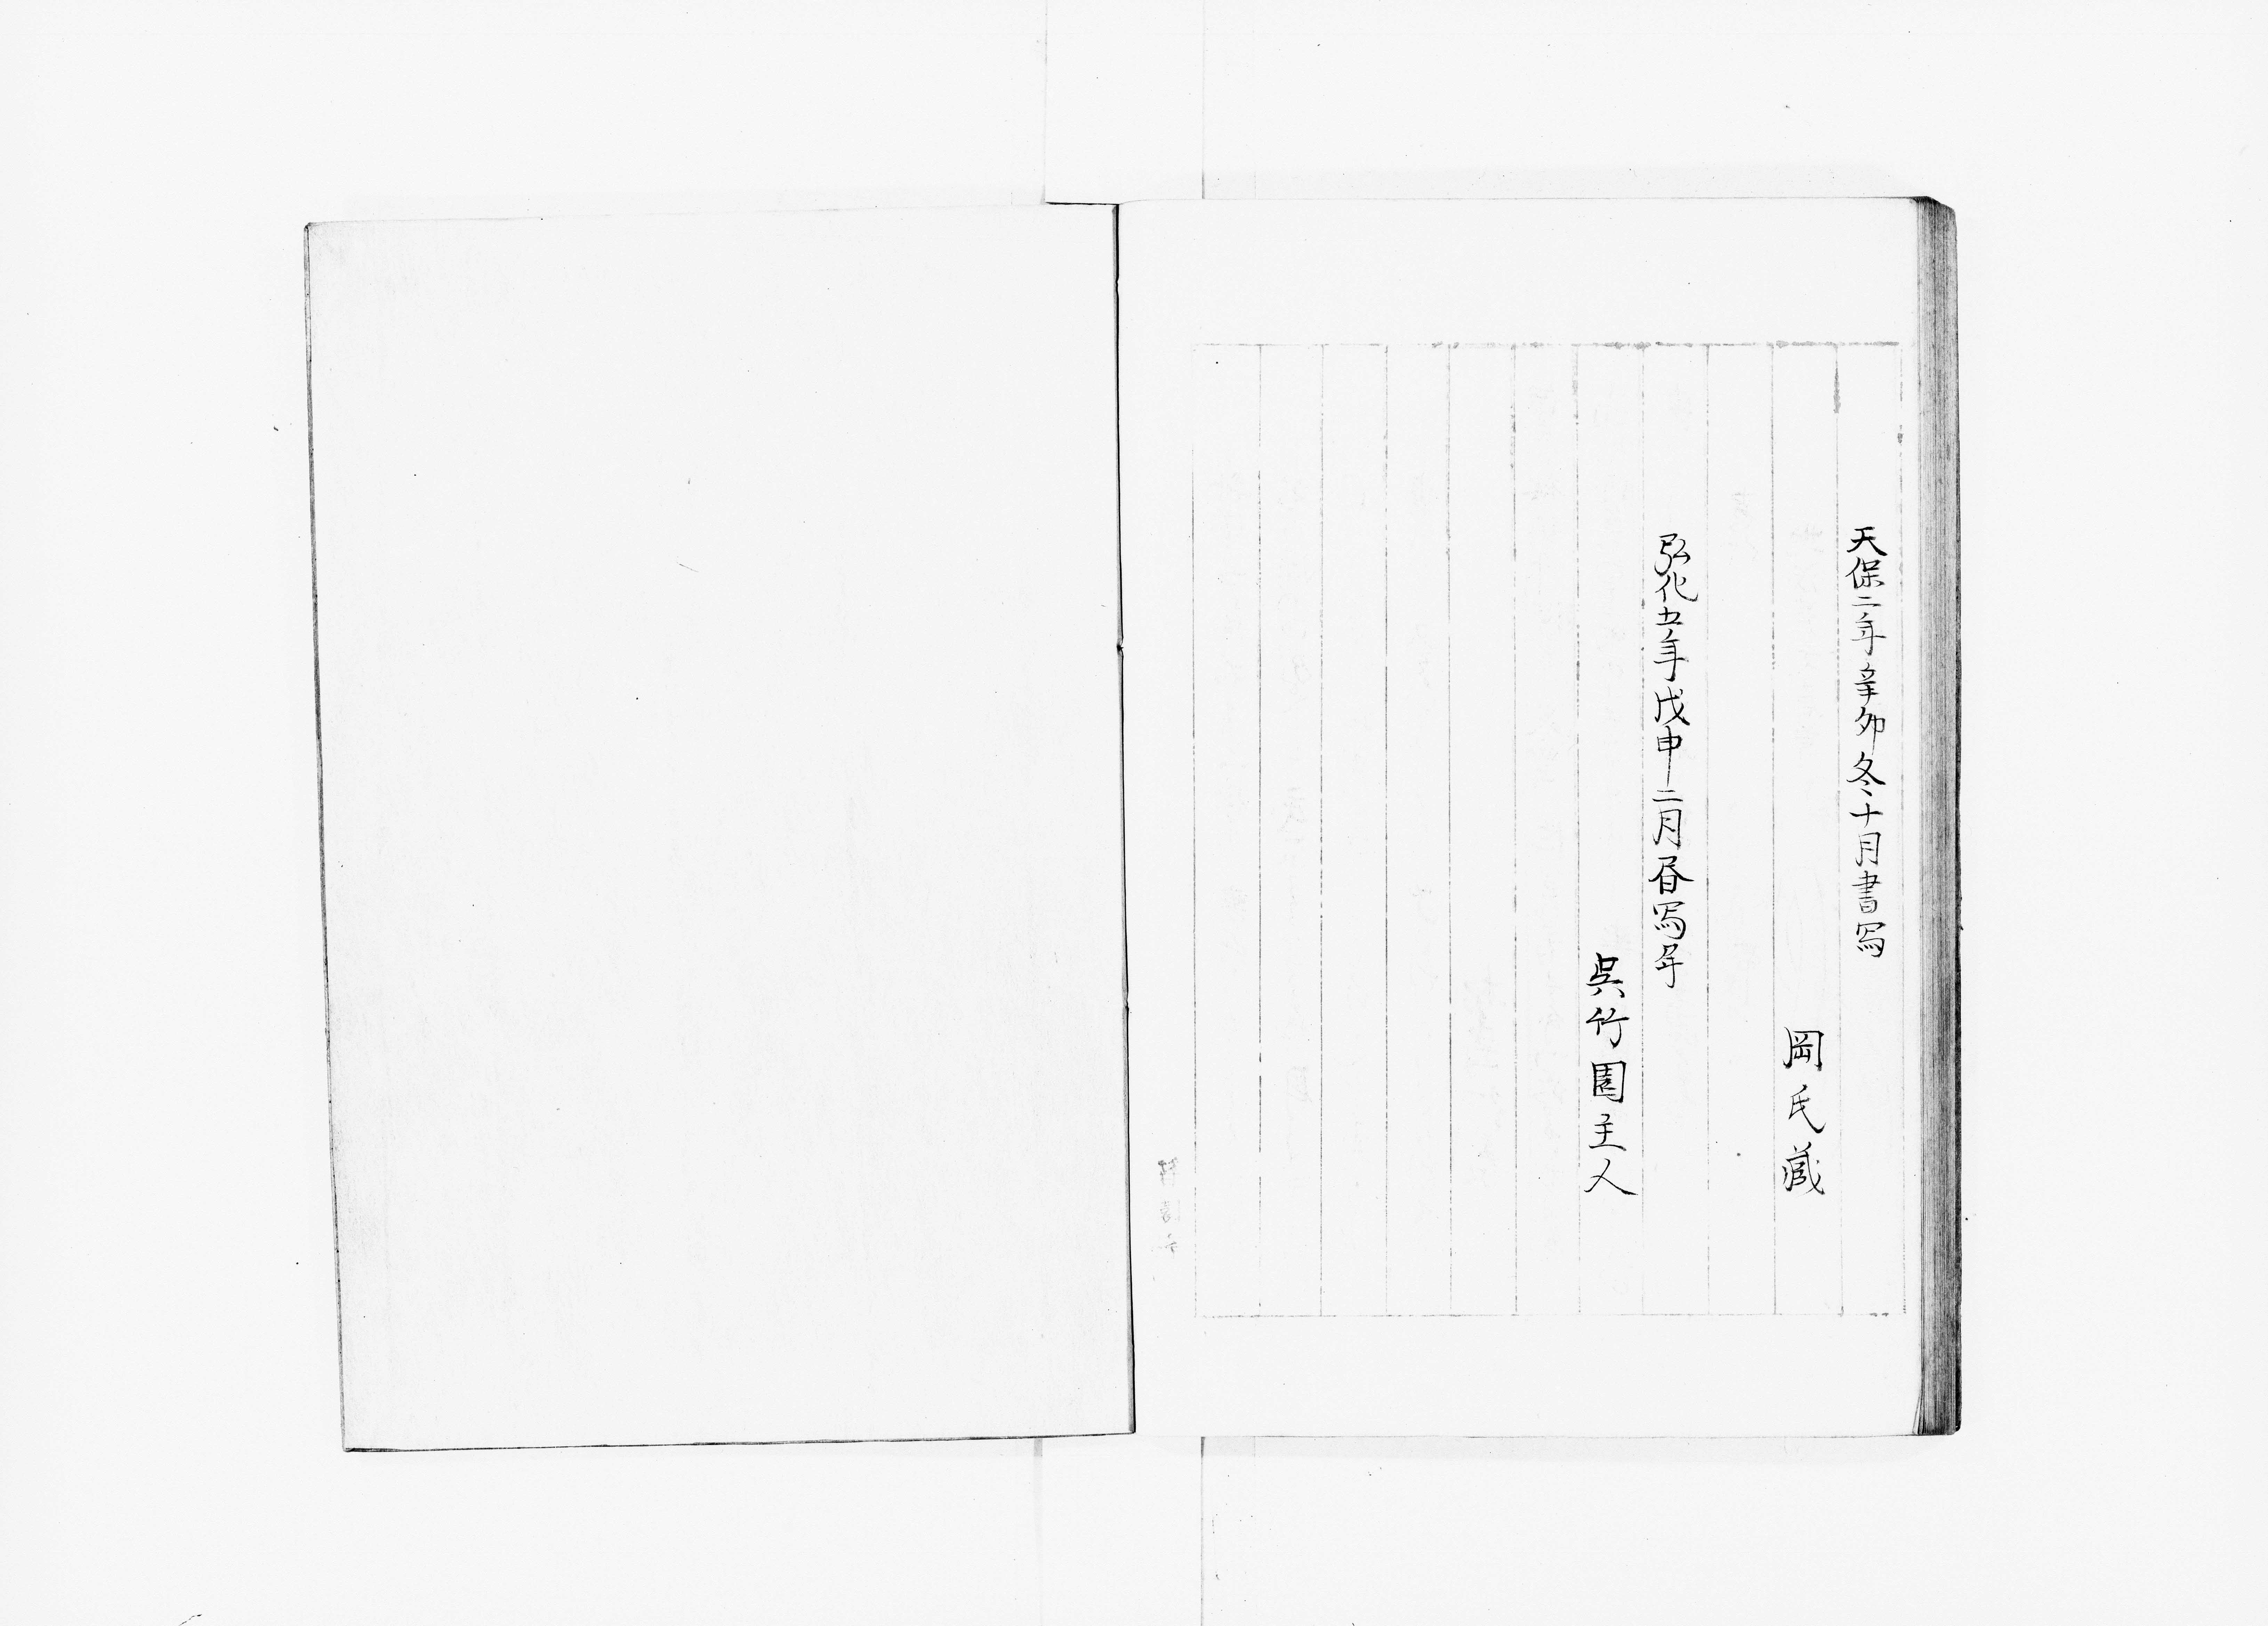 天保二年辛卯冬十月書写
岡氏蔵
弘化五年戊申二月写
呉竹園主人